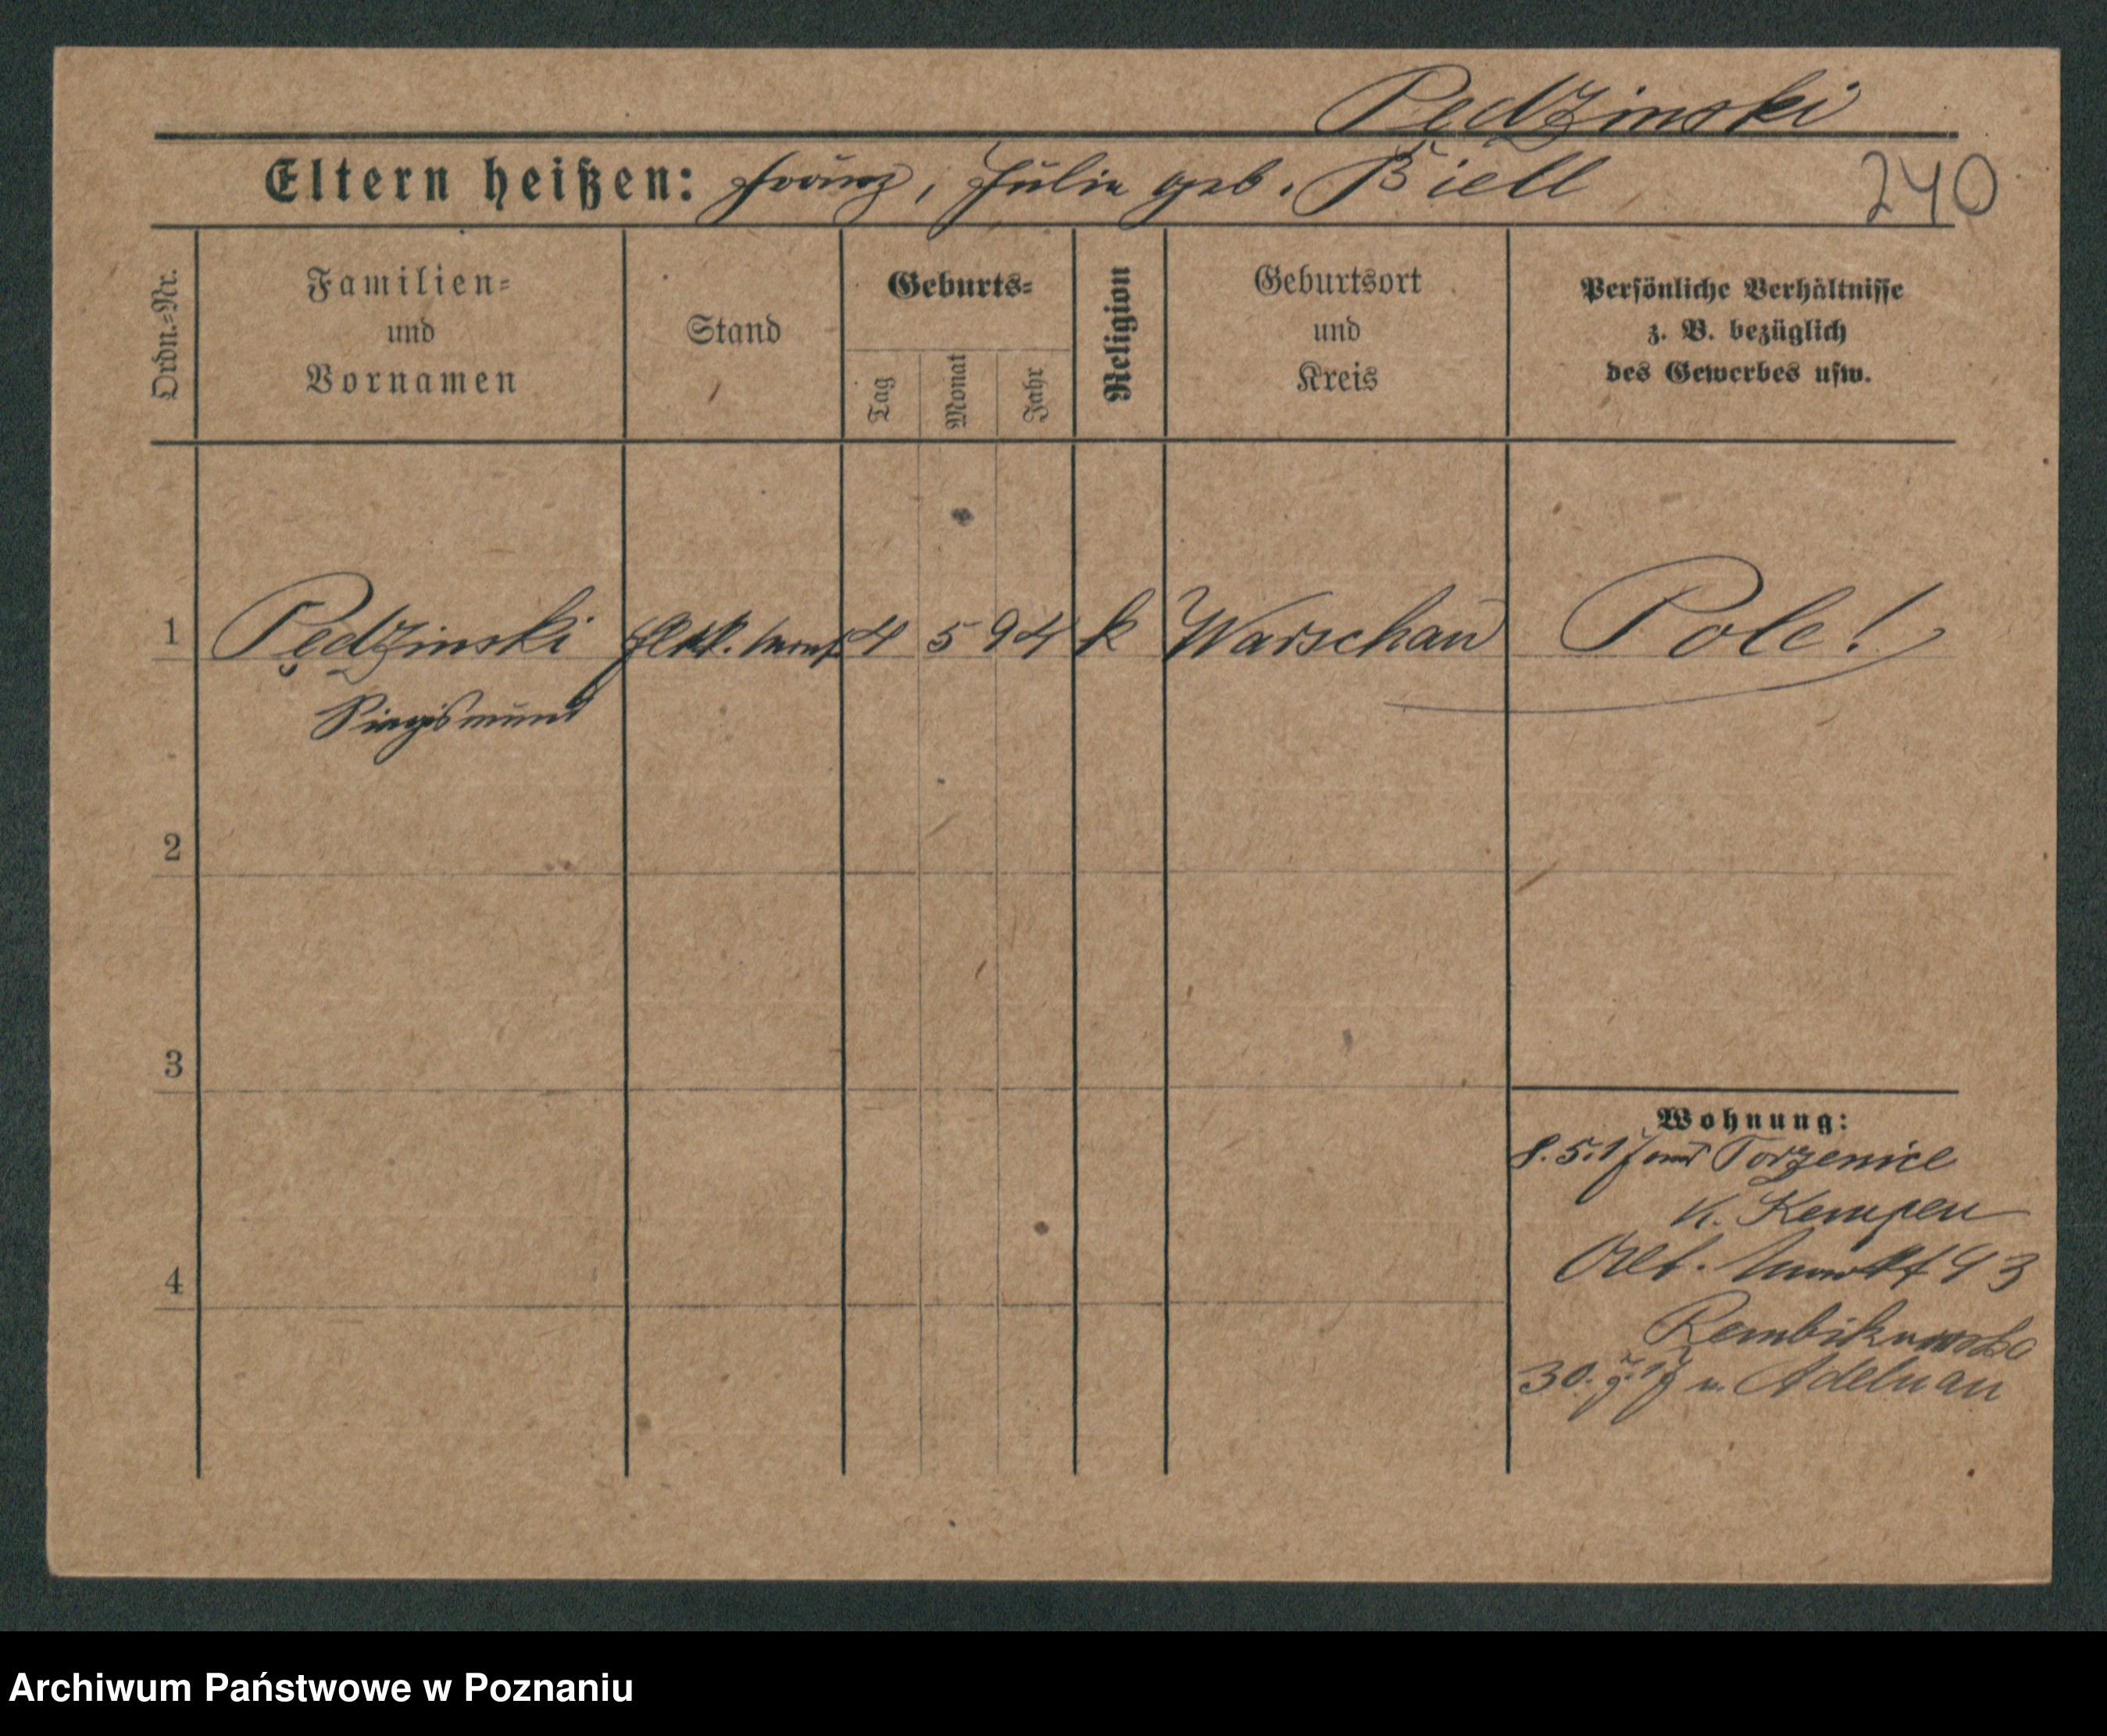 Pedzinski
Eltern heißen: Franz, Julie geb. Biell
240
Ordn.=Nr.
Familien=
und
Vornamen
Stand
Geburts=
Tag
Monat
Jahr
Religion
Geburtsort
und
Kreis
Persönliche Verhältnisse
z. B. bezüglich
des Gewerbes usw.
1 Pędzinski 4 5 94 k Warschau Pole!
Siegismund
2
3
4
Wohnung:
8.5.17 Torzenice
K. Kempen
Alt. Markt 43
30. 17 n. Adelnau
Archiwum Państwowe w Poznaniu